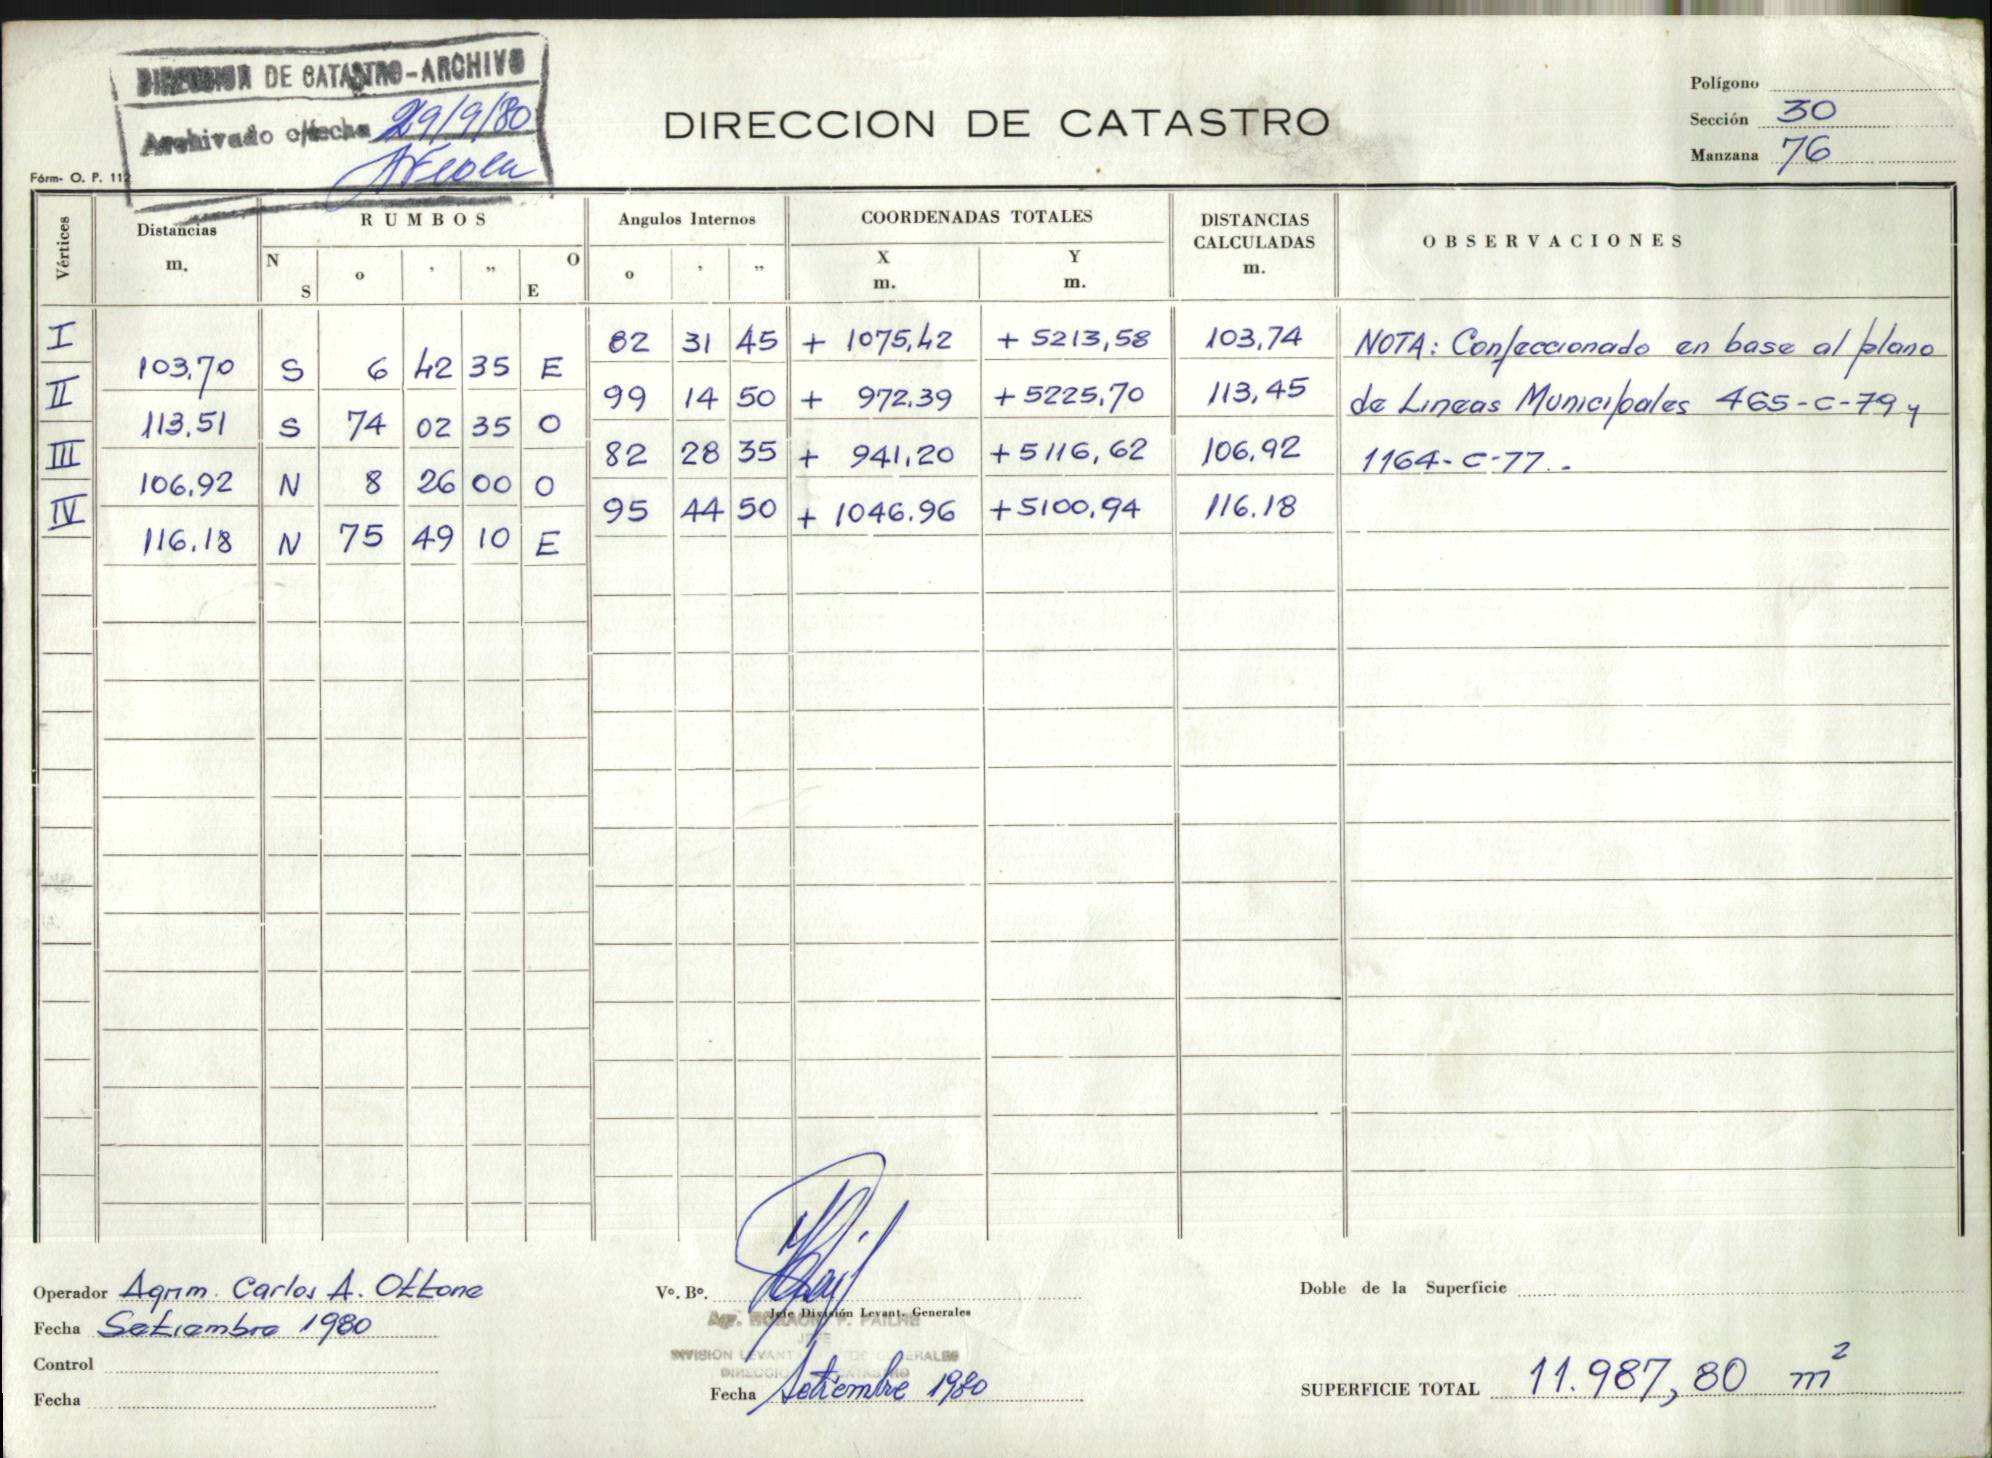 DIRECCION DE CATASTRO-ARCHIVO
Archivado c/fecha 29/9/80
DIRECCION DE CATASTRO
Polígono
Sección 30
Manzana 76
Fórm- O. P. 112
Vértices
Distancias
m.
RUMBOS
N
S
o
'
„
O
E
Angulos Internos
o
'
„
COORDENADAS TOTALES
X
m.
Y
m.
DISTANCIAS
CALCULADAS
m.
OBSERVACIONES
I 82 31 45 + 1075,42 + 5213,58 103,74 NOTA: Confeccionado en base al plano
103,70 S 6 42 35 E
II 99 14 50 + 972.39 +5225,70 113,45 de Lineas Municipales 465-C-79 y
113,51 S 74 02 35 O
III 82 28 35 + 941,20 +5116,62 106,92 1164-C-77..
106,92 N 8 26 00 O
IV 95 44 50 + 1046.96 +5100,94 116.18
116,18 N 75 49 10 E
Operador Agrim. Carlos A. Ottone
Fecha Setiembre 1980
Control
Fecha
Vº. Bº.
Jefe División Levant. Generales
Agr. HORACIO P. PAILHE
JEFE
DIVISION GENERALES
Fecha Setiembre 1980
Doble de la Superficie
SUPERFICIE TOTAL 11.987,80 m²